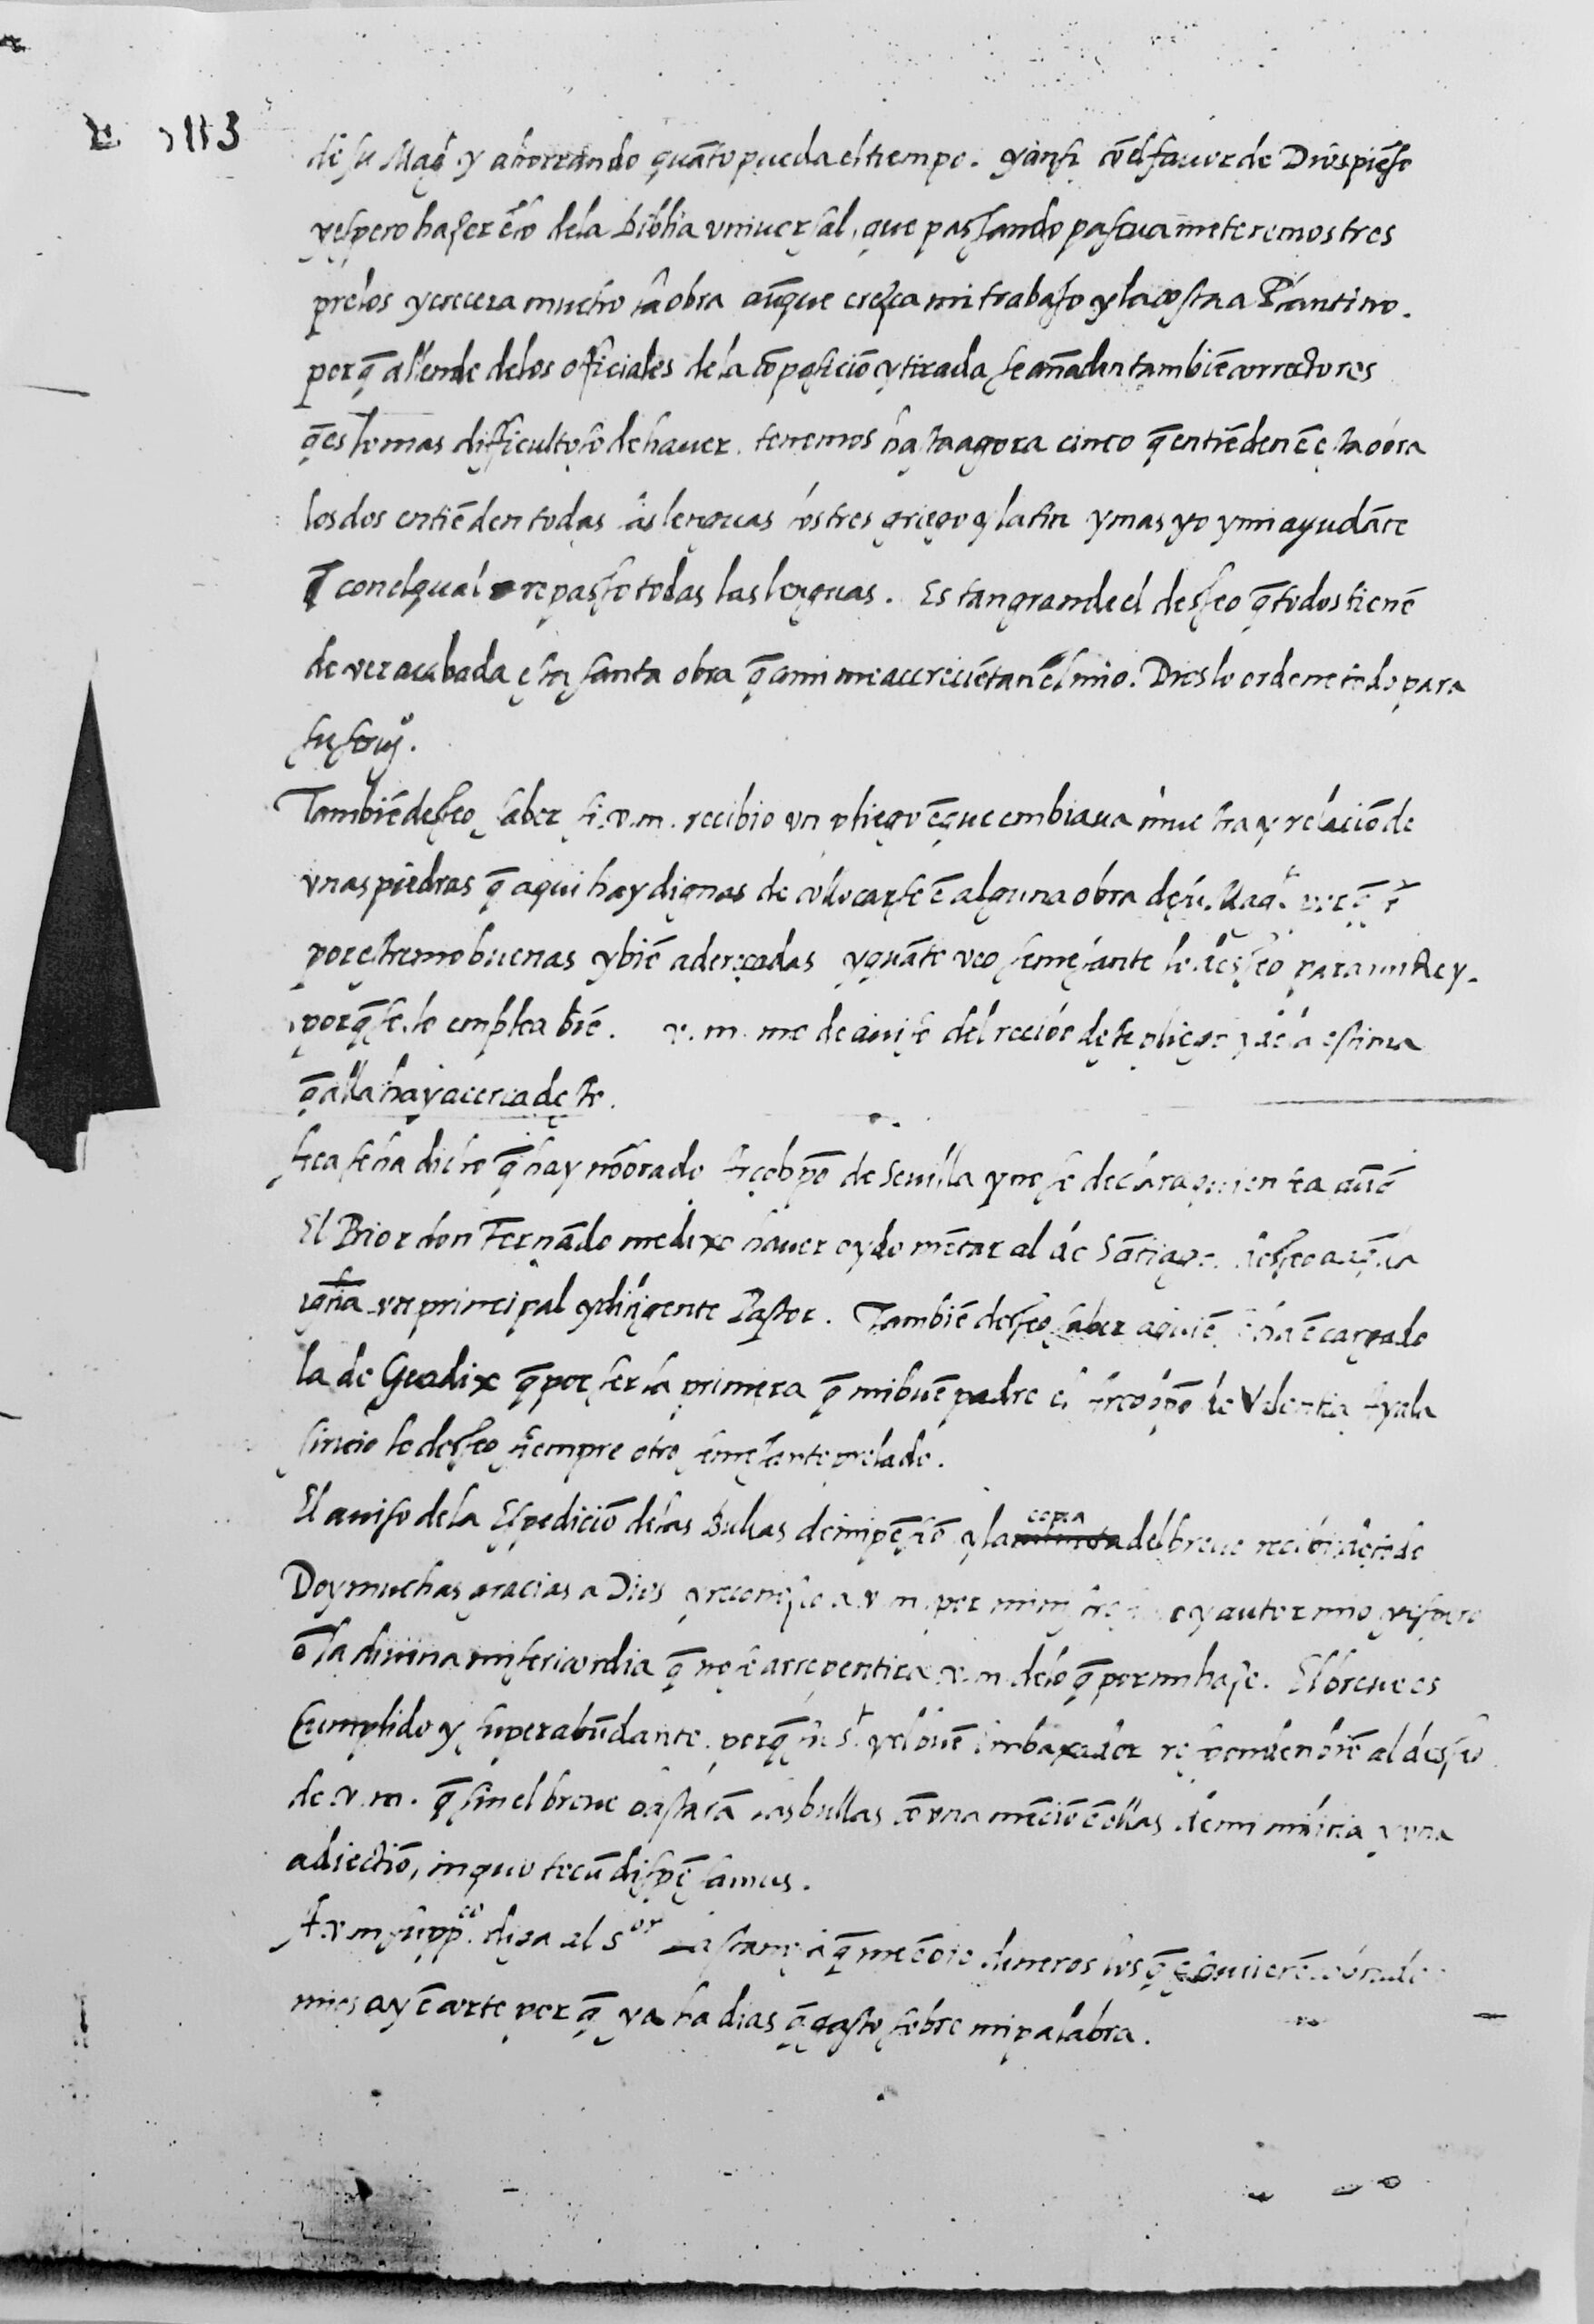 113
de su Magd. y ahorrando quāto pueda el tiempo. y ansi cō el fauor de Dios piēso
y espero hazer ēlo dela biblia vniuersal, que passando pascua meteremos tres
prelos y crecera mucho la obra aūque crezca mi trabajo y la costa a Plantino.
porq̄ allende delos officiales dela cōposiciō y tirada se añadēn tambiē correctores
q̄ es lo mas difficultoso de hauer. tenemos hasta agora cinco q̄ entiēden ē esta obra
los dos entiēden todas las lenguas los tres griego y latin y mas yo y mi ayudāte
con el qual repasso todas las lenguas. Es tan grande el desseo q̄ todos tienē
de ver acabada esta santa obra q̄ a mi me accreciētan el mio. Dios lo ordene todo para
su seruº.
Tambiē desseo saber si .v.m. recibio vn pliego ē que embiaua muestra y relaciō de
vnas piedras q̄ aqui hay dignas de collocarse ē alguna obra de su Magt. porq̄
por estremo buenas y biē adereçadas y quāto veo semejante lo desseo para mi Rey.
porq̄ se le emplea biē. v.m. me de auiso del recibo deste pliego y de la estima
q̄ alla hay acerca desto.
Aca se ha dicho q̄ hay nōbrado Arçobpō de Seuilla y no se declara quien sea aunq̄
El Prior don Fernādo me dixo hauer oydo mētar al de Sātiago. desseo a aq̄lla
ygłia vn principal y diligente Pastor. Tambiē desseo saber a quiē se ha ēcargado
la de Guadix q̄ por ser la primera q̄ mi buē padre el Arçobpō de Valentia Ayala
siruio le desseo siempre otro semejante prelado.
El auiso dela Espediciō delas Bullas de mi pēsiō y la copia del breue recibi
Doy muchas gracias a Dios y reconosco a .v.m. por mi y autor mio y espero
ē la diuina misericordia q̄ no se arrepentira .v.m. delo q̄ por mi haze. El breue es
Cumplido y superabūdante. porq̄ su St. y el buē Embaxador respondierō biē al desseo
de .v.m. q̄ sin el breue bastarā las bullas cō vna mēciō ē ellas de mi milicia y vna
adiectiō, in quo tecū dispēsamus.
A .v.m. suppco. diga al Sor q̄ me ēbie dineros los q̄ se huuierē cobrado
mios ay ē corte porq̄ ya ha dias q̄ gasto sobre mi palabra.